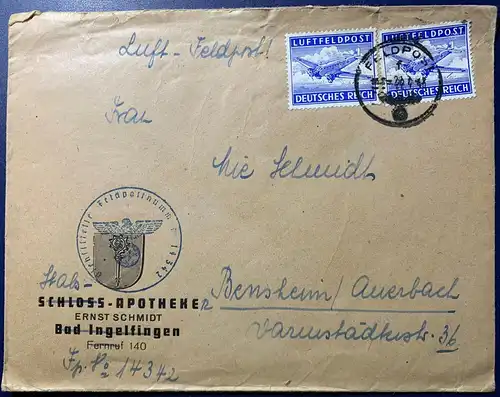 Luft-Feldpost!
LUFTFELDPOST
DEUTSCHES REICH
LUFTFELDPOST
DEUTSCHES REICH
FELDPOST
Frau
Mie Schmidt
Feldpostnumm
14342
Stabs-
SCHLOSS-APOTHEKE
ERNST SCHMIDT
Bad Ingelfingen
Fernruf 140
Fp. No 14342
Bensheim/Auerbach
Darmstädterstr 36